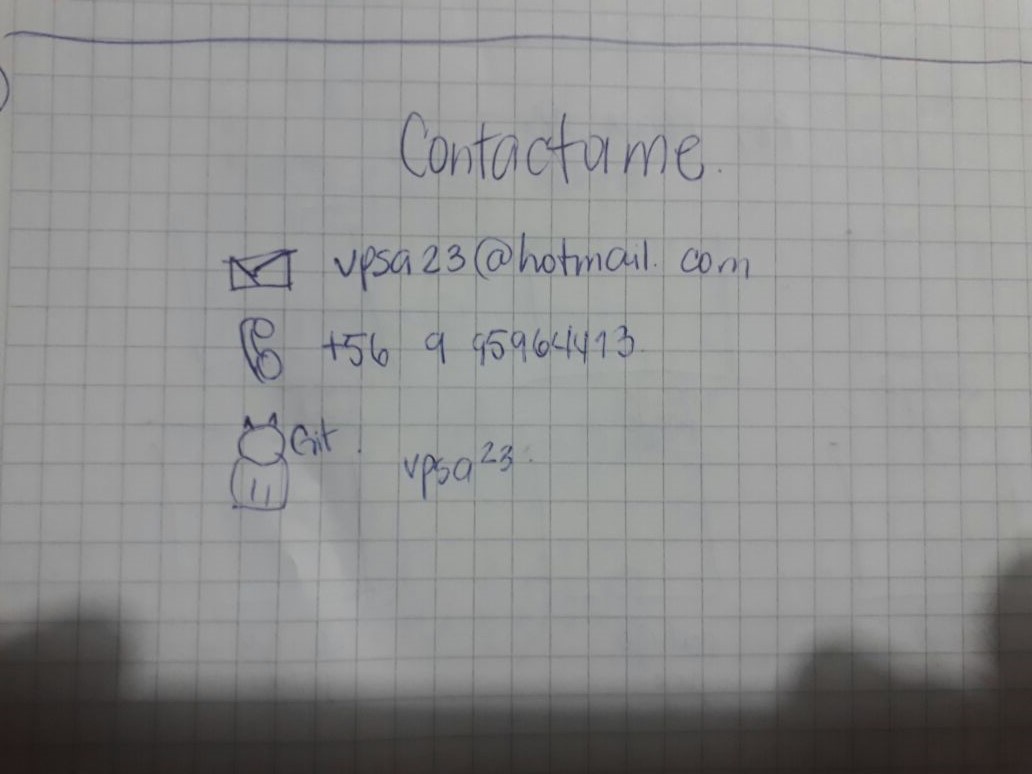 Contactame.
vpsa23@hotmail.com
+56 9 95964413
Git
vpsa23